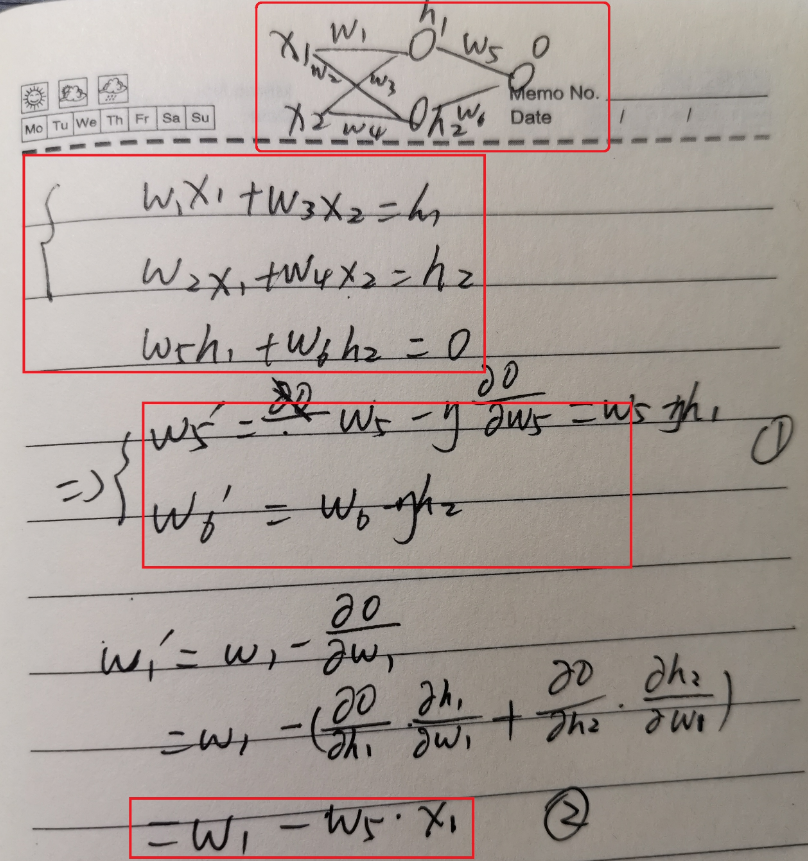 x₁ w₁ h₁ w₅ O
w₂ w₃
x₂ w₄ h₂ w₆
Memo No.
Mo Tu We Th Fr Sa Su
Date / /
w₁x₁ + w₃x₂ = h₁
w₂x₁ + w₄x₂ = h₂
w₅h₁ + w₆h₂ = O
=> { w₅' = w₅ - η ∂O/∂w₅ = w₅ - ηh₁ ①
w₆' = w₆ - ηh₂
w₁' = w₁ - ∂O/∂w₁
= w₁ - (∂O/∂h₁ · ∂h₁/∂w₁ + ∂O/∂h₂ · ∂h₂/∂w₁)
= w₁ - w₅ · x₁ ②